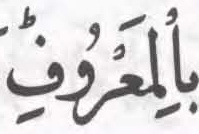 بِالْمَعْرُوفِ